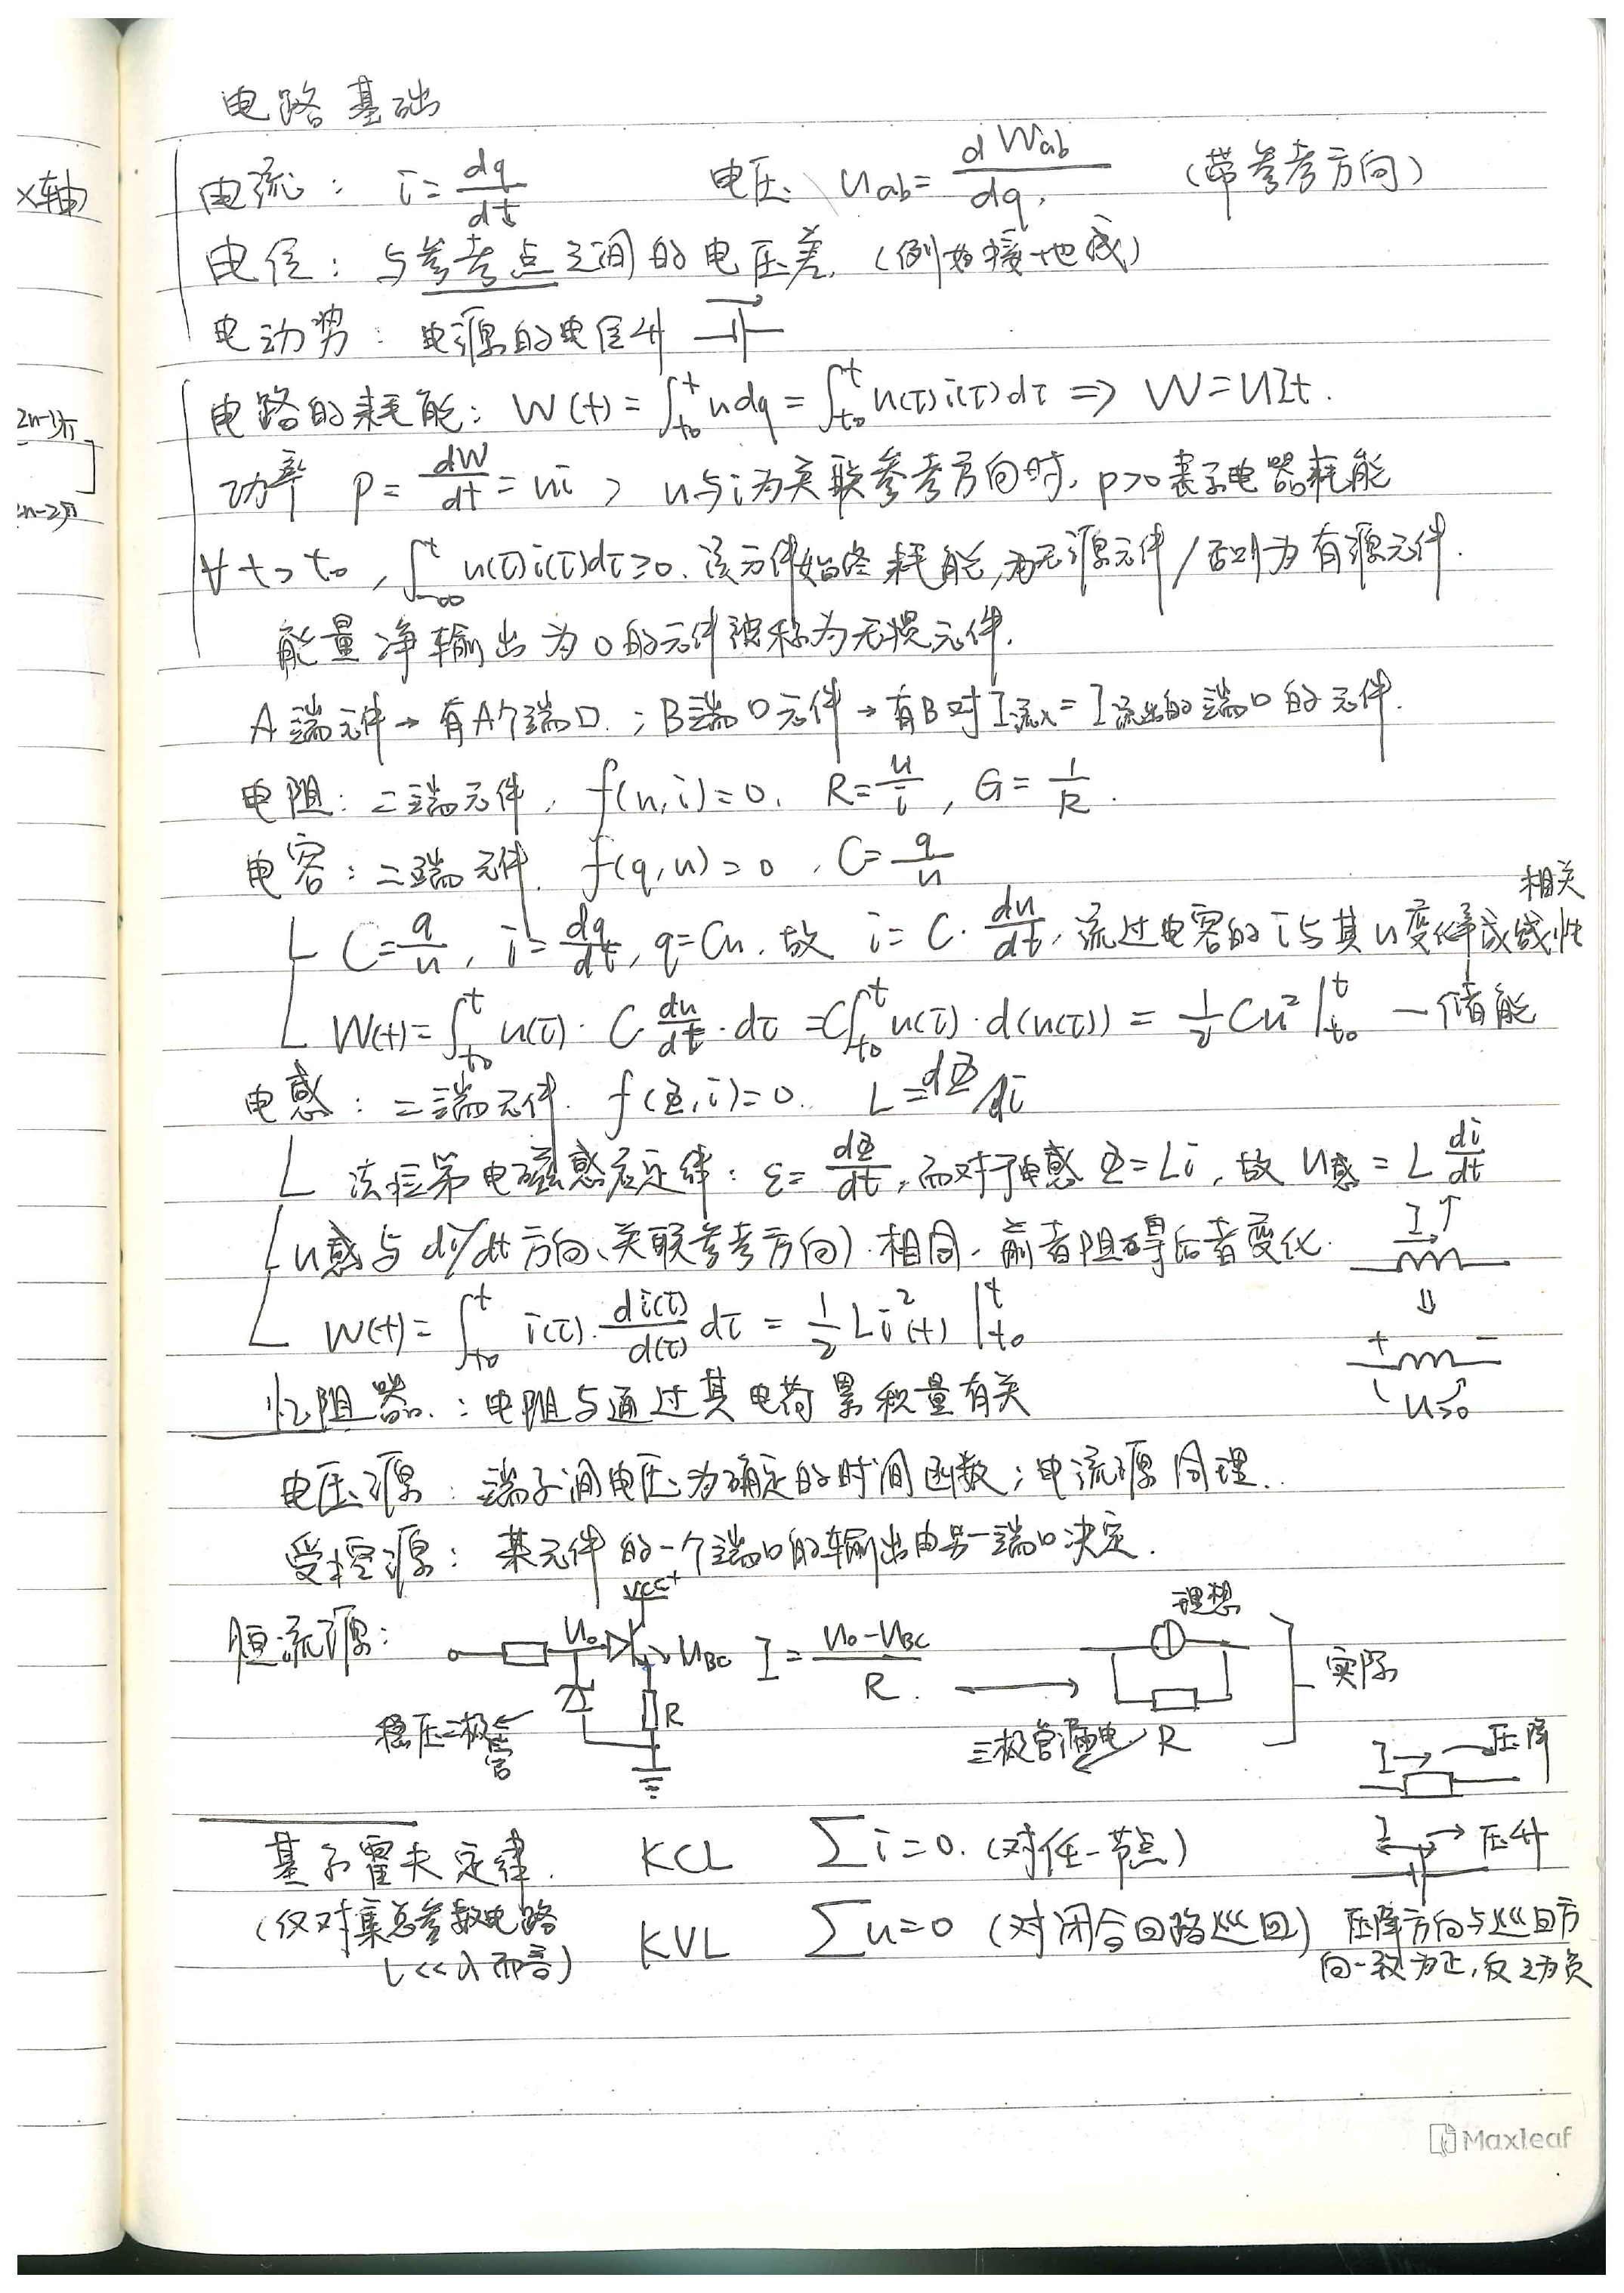 x轴
2n-1)π
2n-2)π
电路基础
电流: i = dq/dt 电压: u_ab = dW_ab/dq. (带参考方向)
电位: 与参考点之间的电压差. (例如接地或)
电动势: 电源的电位升
电路的耗能: W(t) = ∫_{t0}^{t} u dq = ∫_{t0}^{t} u(τ)i(τ)dτ ⇒ W=UIt.
功率 p = dW/dt = ui, u与i为关联参考方向时, p>0表示电器耗能
∀t>t0, ∫_{-∞}^{t} u(τ)i(τ)dτ≥0. 该元件始终耗能, 为无源元件/否则为有源元件.
能量净输出为0的元件被称为无损元件.
A端元件→有A个端口.; B端口元件→有B对I流入=I流出的端口的元件.
电阻: 二端元件, f(u,i)=0. R=u/i, G=1/R.
电容: 二端元件. f(q,u)=0, C=q/u
相关
C=q/u, i=dq/dt, q=Cu. 故 i=C·du/dt, 流过电容的i与其u变化率成线性
W(t)=∫_{t0}^{t} u(τ)·C du/dt·dτ = C∫_{t0}^{t} u(τ)·d(u(τ)) = 1/2 Cu² |_{t0}^{t} —储能
电感: 二端元件. f(Φ,i)=0. L=dΦ/di
法拉第电磁感应定律: ε=dΦ/dt, 而对于电感 Φ=Li, 故 u感=L di/dt
u感与di/dt方向(关联参考方向)相同, 前者阻碍后者变化. I
W(t)=∫_{t0}^{t} i(τ)·di(τ)/d(τ) dτ = 1/2 Li²(t) |_{t0}^{t}
+ -
U>0
忆阻器.: 电阻与通过其电荷累积量有关
电压源: 端子间电压为确定的时间函数; 电流源同理.
受控源: 某元件的一个端口的输出由另一端口决定.
VCC+
理想
恒流源: U0 UBC I = U0-UBC/R. 实际
稳压二极管 R 三极管漏电 R
I 压降
基尔霍夫定律. KCL ∑i=0. (对任一节点) I 压升
(仅对集总参数电路 KVL ∑u=0 (对闭合回路巡回) 压降方向与巡回方
l<<λ而言) 向一致为正, 反之为负
Maxleaf